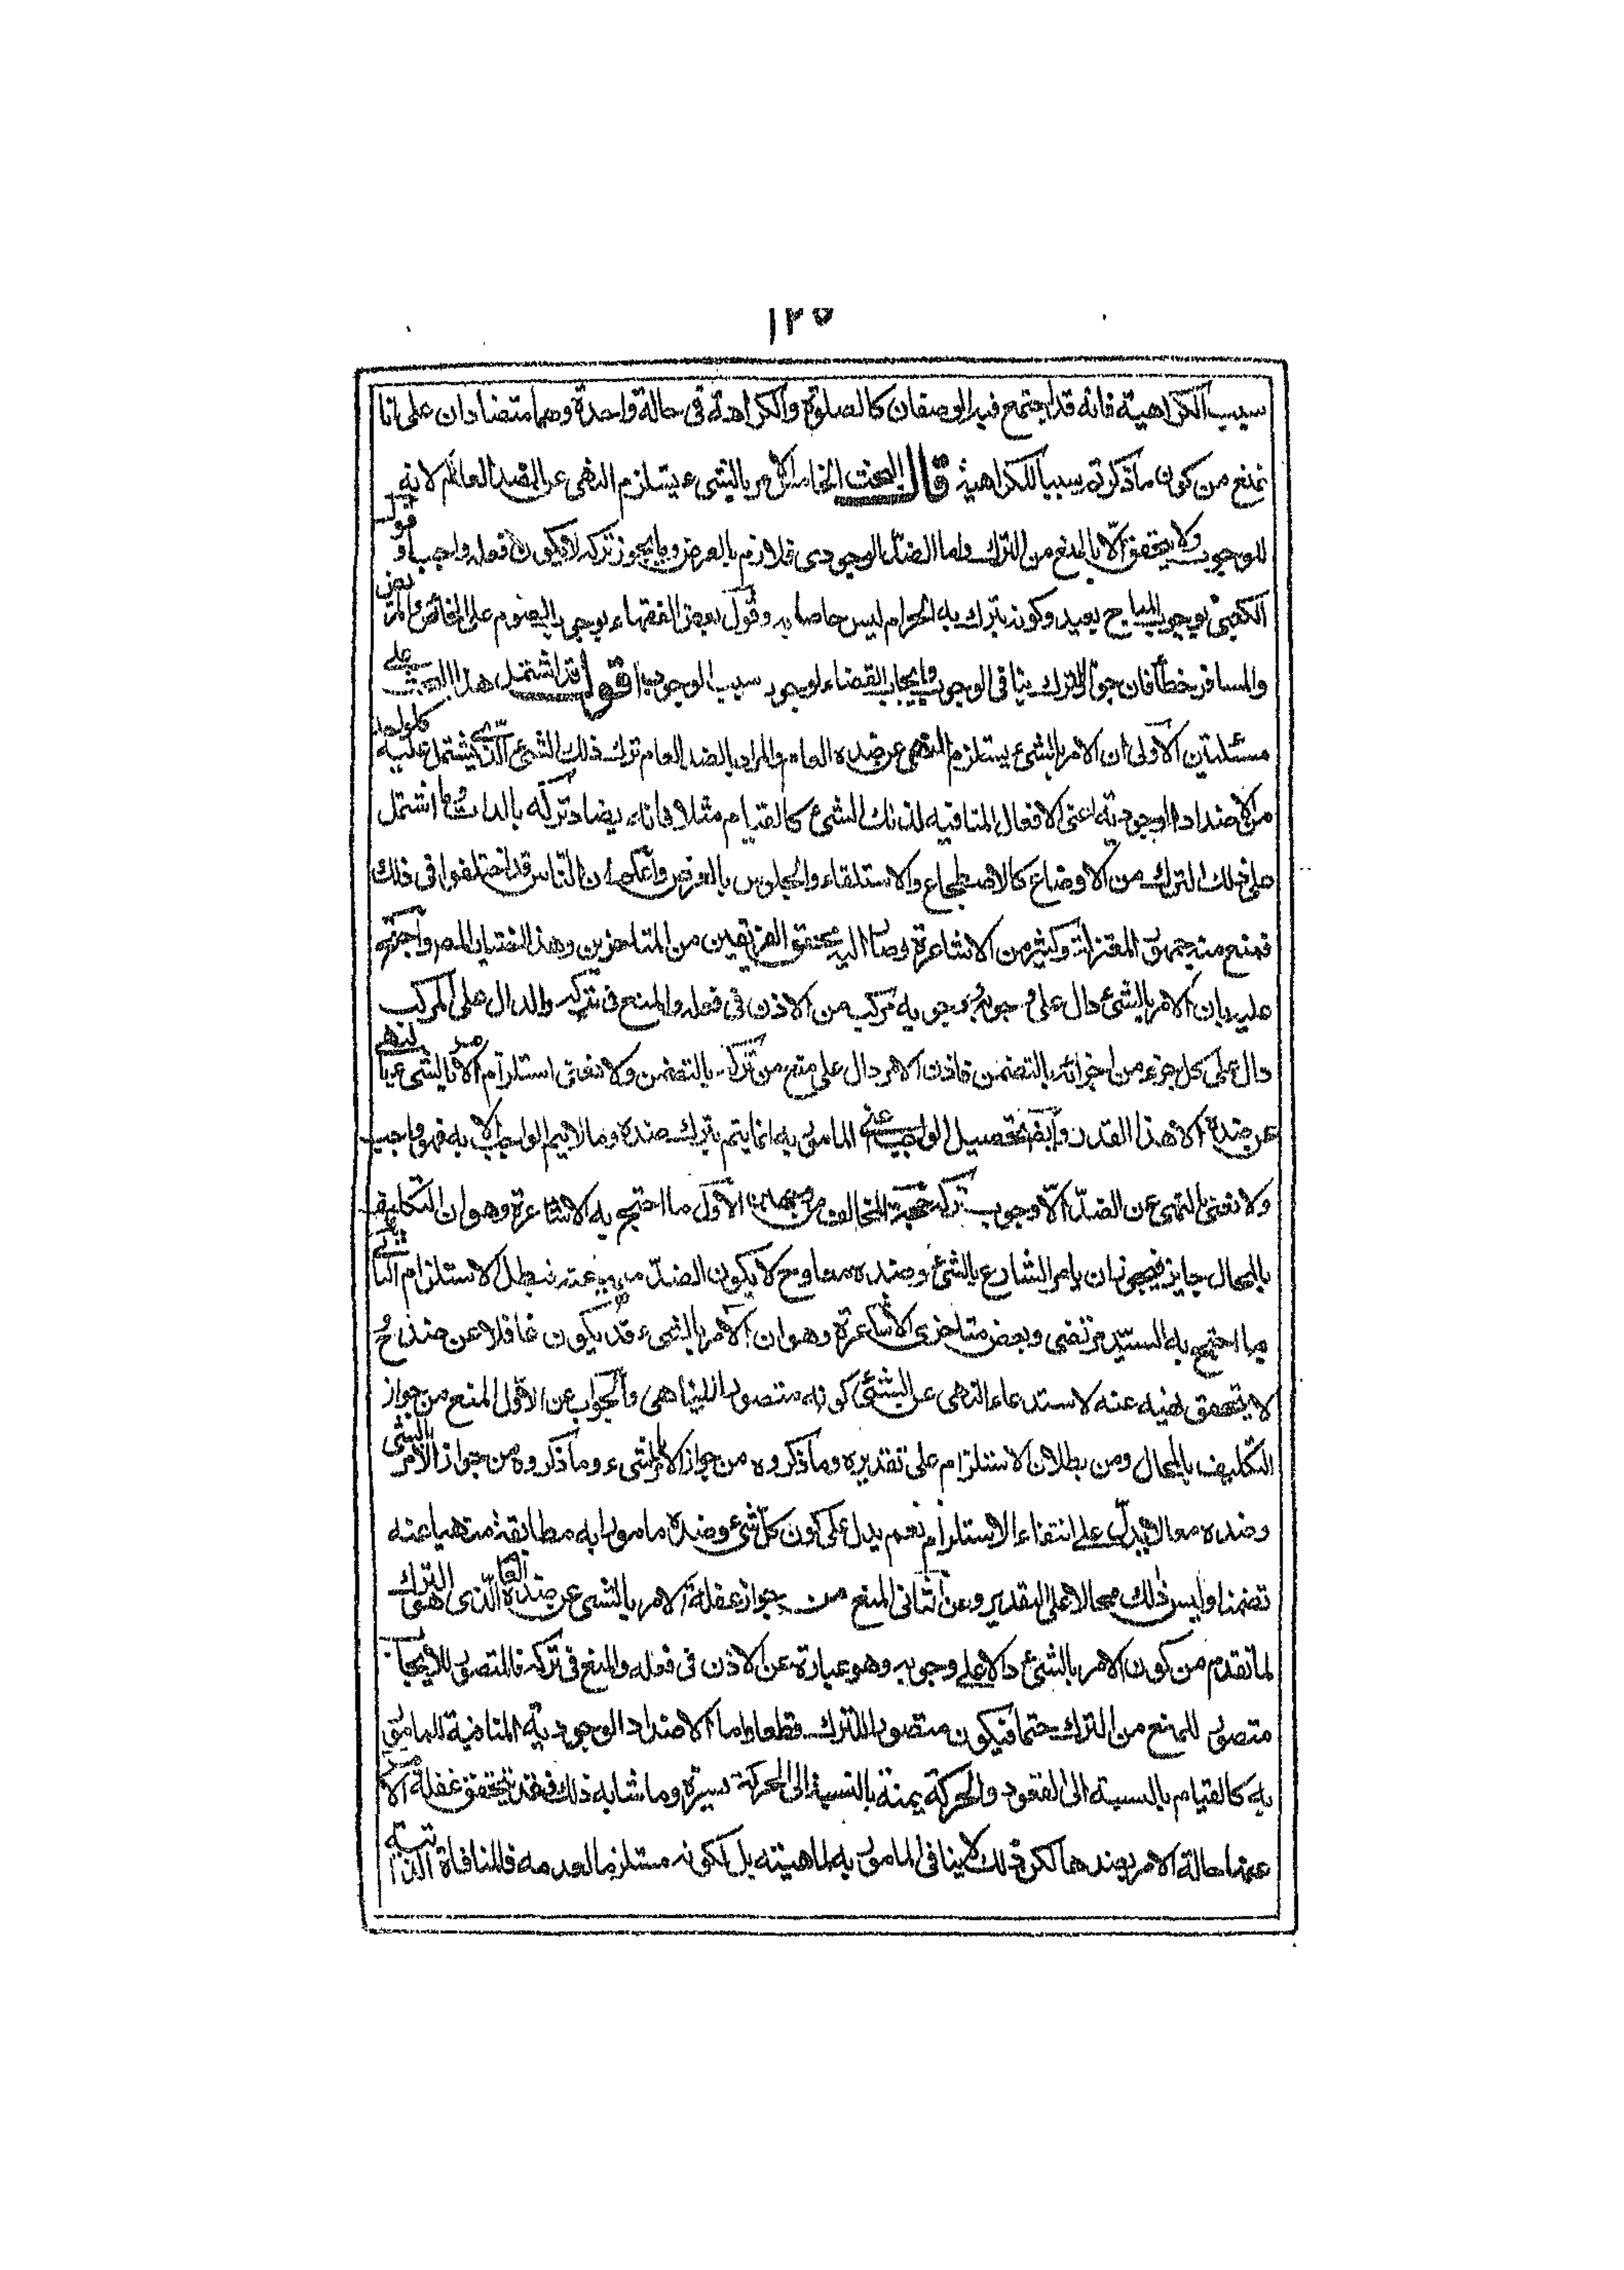 ١٢٥
سبب الكراهية فانه قد اجتمع فيه الوصفان كالصلوة والكراهة فى حالة واحدة وهما متضادان على انا
نمنع من كون ما ذكرتم سببا للكراهية قال البحث الخامس الامر بالشىء يستلزم النهى عن الضد العام لانه
للوجوب ولا يتحقق الا بالمنع من الترك واما الضد الوجودى فلازم بالعرض وما يجوز تركه لا يكون فعله واجبا وقول
الكعبى بوجوب المباح بعيد وكونه يترك به الحرام ليس خاصا به وقول بعض الفقهاء بوجوب الصوم على الحائض والمريض
والمسافر خطأ فان جواز الترك ينافى الوجوب وايجاب القضاء لوجود سبب الوجوب اقول قد اشتمل هذا البحث على
مسئلتين الاولى ان الامر بالشىء يستلزم النهى عن ضده العام والمراد بالضد العام ترك ذلك الشىء الذى يشتمل عليه كل واحد
من الاضداد الوجودية اعنى الافعال المنافيه لذلك الشىء كالقيام مثلا فانه يضاد تركه بالذات وما اشتمل
على ذلك الترك من الاوضاع كالاضطجاع والاستلقاء والجلوس بالعرض واعلم ان الناس قد اختلفوا فى ذلك
فمنع منه جمهور المعتزلة وكثير من الاشاعرة وصار اليه محققوا الفريقين من المتاخرين وهذا اختيار المصر واحتج
عليه بان الامر بالشىء دال على وجوبه ووجوبه مركب من الاذن فى فعله والمنع فى تركه والدال على المركب
دال على كل جزء من اجزائه بالتضمن فاذن الامر دال على منع من تركه بالتضمن ولا نعنى استلزام الامر بالشىء بالنهى
عن ضده الا هذا القدر وايضا تحصيل الواجب اعنى المامور به انما يتم بترك ضده وما لا يتم الواجب الا به فهو واجب
ولا نعنى بالنهى عن الضد الا وجوب تركه حجة المخالف من وجهين الاول ما احتج به الاشاعرة وهو ان التكليف
بالمحال جايز فيجوز ان يامر الشارع بالشىء وضده معا وح لا يكون الضد منهيا عنه فبطل الاستلزام الثانى
ما احتج به السيد مرتضى وبعض متاخرى الاشاعرة وهو ان الامر بالشىء قد يكون غافلا عن ضده وح
لا يتحقق نهيه عنه لاستدعاء النهى عن الشىء كونه متصورا للناهى والجواب عن الاول المنع من جواز
التكليف بالمحال ومن بطلان الاستلزام على تقديره وما ذكروه من جواز الامر بالشىء وما ذكروه من جواز الامر بالشى
وضده معا لا يدل على انتفاء الاستلزام نعم يدل على كون كل شىء وضده مامورا به مطابقة منهيا عنه
تضمنا وليس ذلك محالا على التقدير وعن الثانى المنع من جواز غفلة الامر بالشىء عن ضده العام الذى هو الترك
لما تقدم من كون الامر بالشىء دالا على وجوبه وهو عبارة عن الاذن فى فعله والمنع فى تركه فالمتصور للايجاب
متصور للمنع من الترك حتما فيكون متصورا للترك قطعا واما الاضداد الوجودية المنافية للمامور
به كالقيام بالنسبة الى القعود والحركة يمنة بالنسبة الى الحركة يسرة وما شابه ذلك فقد يتحقق غفلة الامر
عنها حالة الامر بضدها لكن ذلك لا ينافى المامور به لماهيته بل لكونه مستلزما لعدمه فالمنافاة الذاتية